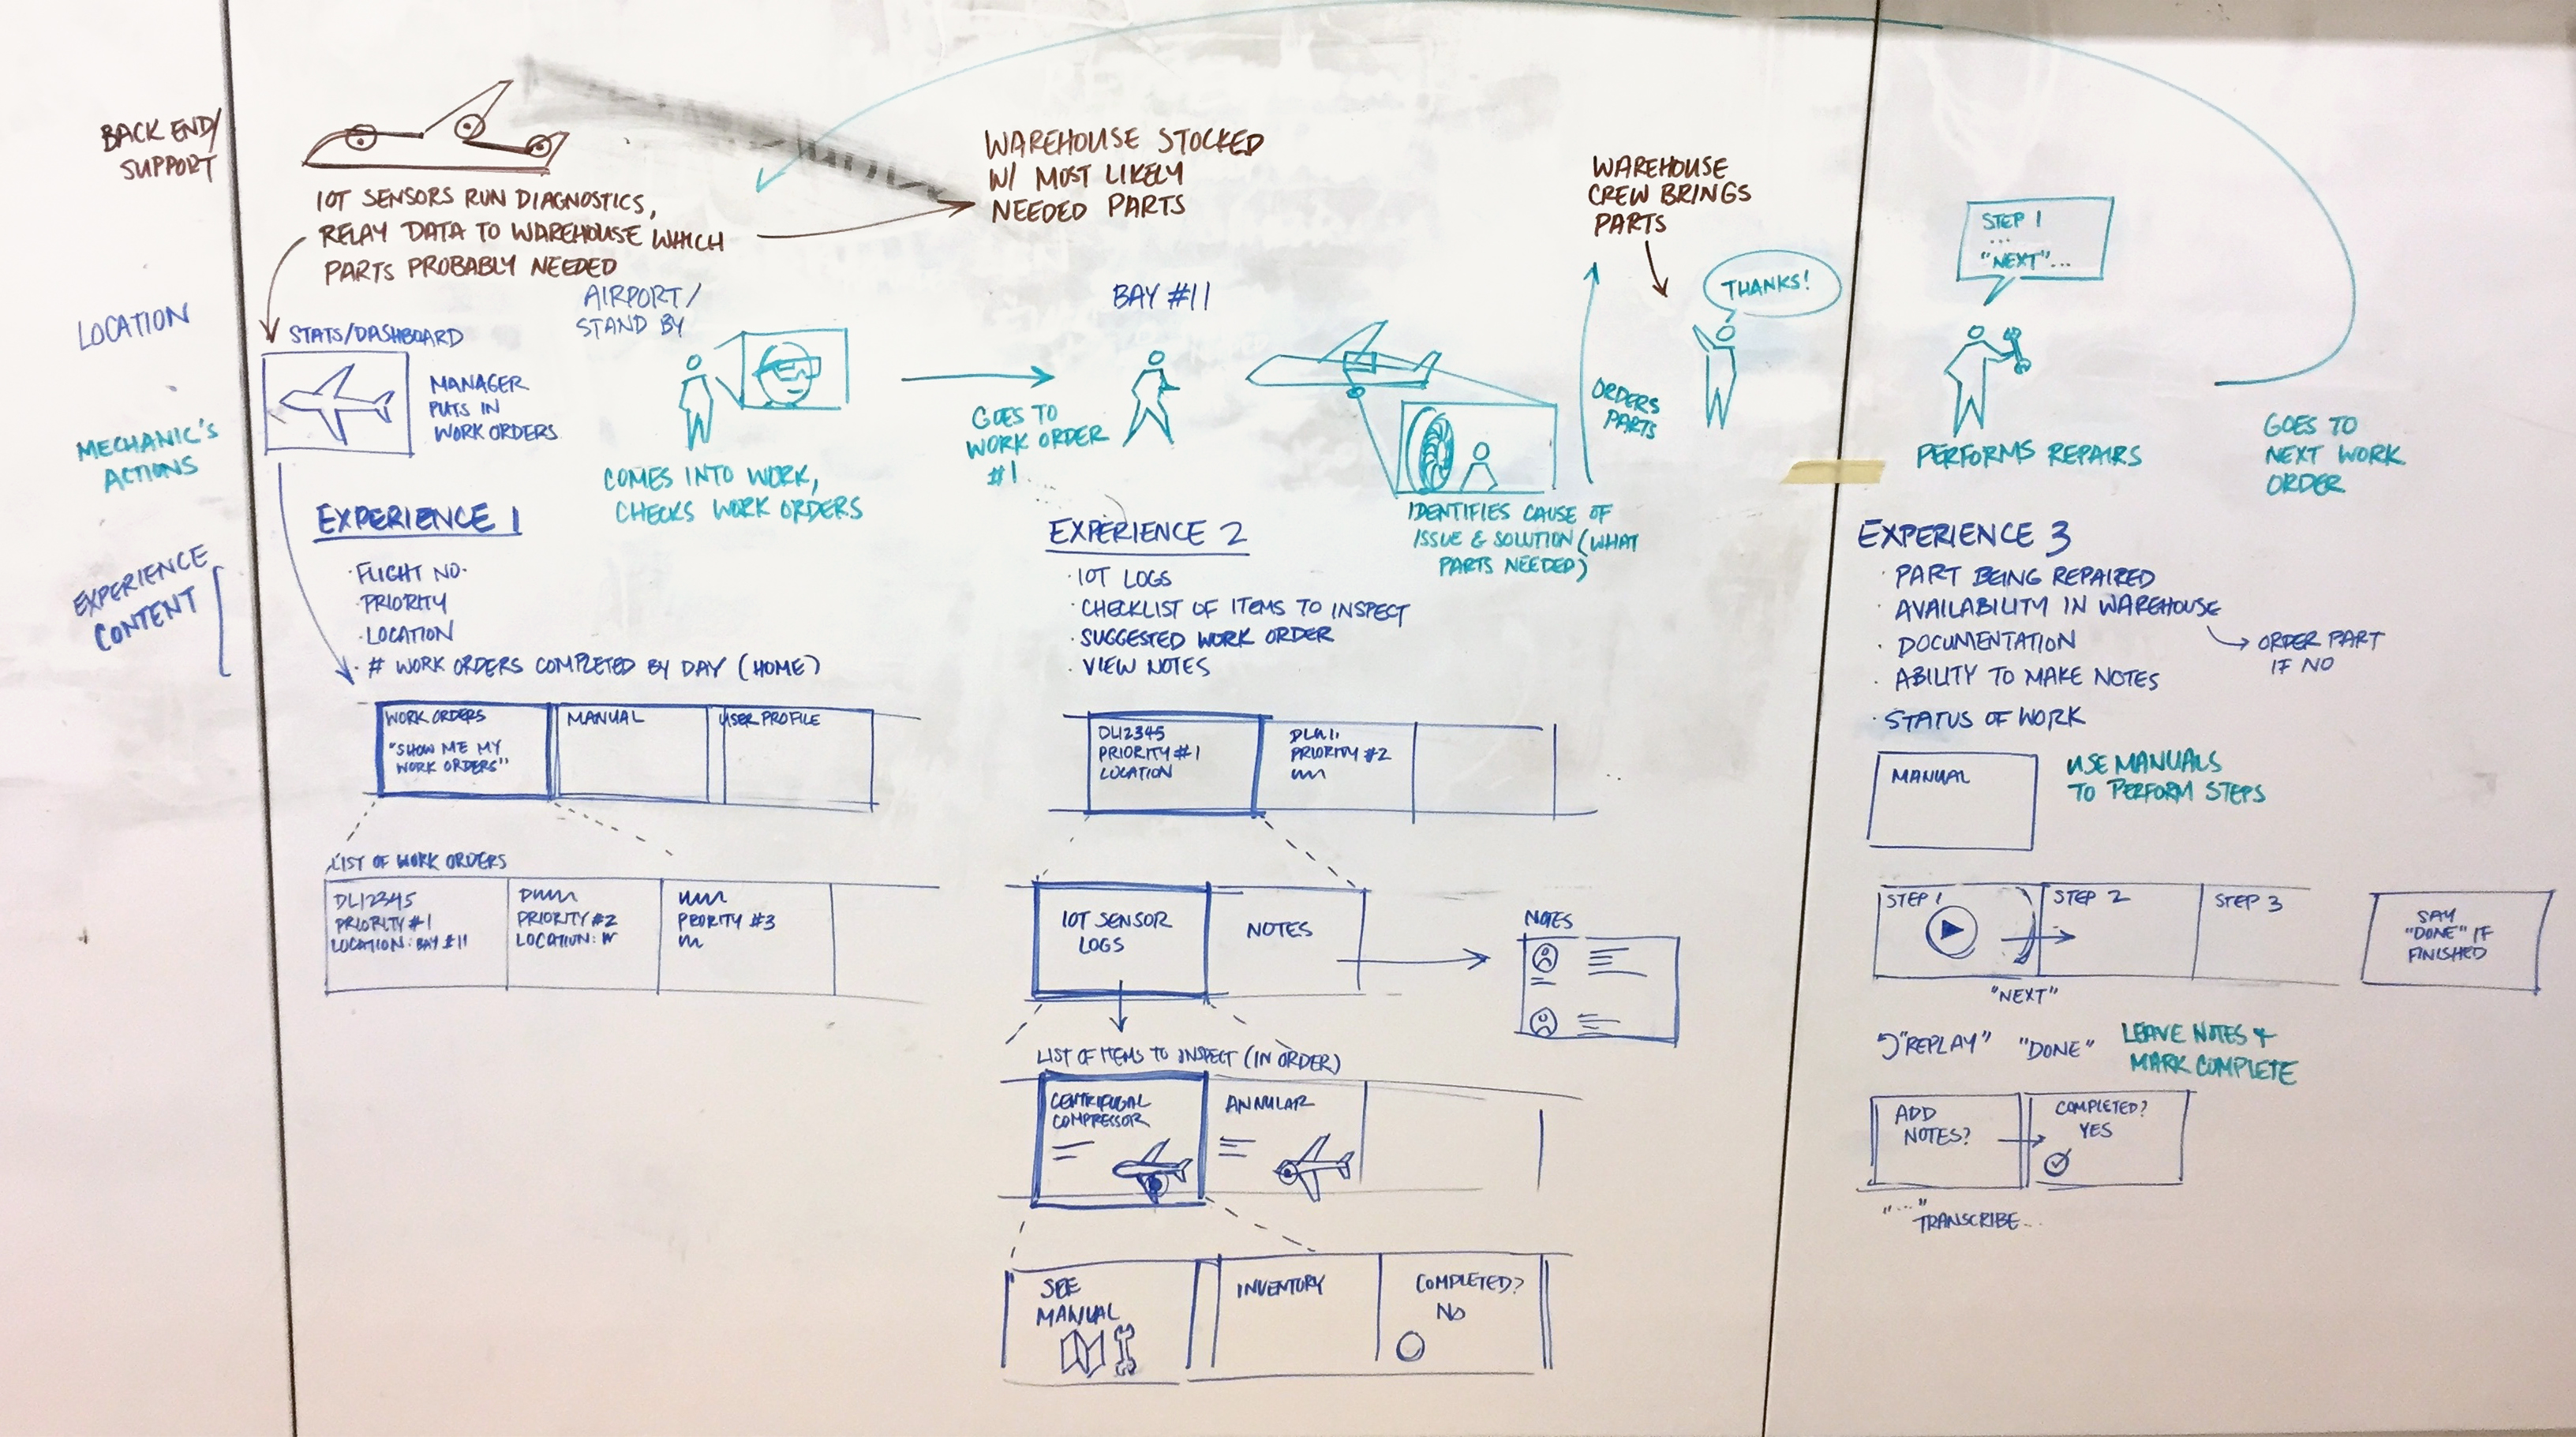 BACK END/
SUPPORT
IOT SENSORS RUN DIAGNOSTICS,
RELAY DATA TO WAREHOUSE WHICH
PARTS PROBABLY NEEDED
WAREHOUSE STOCKED
W/ MOST LIKELY
NEEDED PARTS
WAREHOUSE
CREW BRINGS
PARTS
THANKS!
STEP 1
...
"NEXT"...
LOCATION
AIRPORT/
STAND BY
BAY #11
MECHANIC'S
ACTIONS
STATS/DASHBOARD
MANAGER
PUTS IN
WORK ORDERS
COMES INTO WORK,
CHECKS WORK ORDERS
GOES TO
WORK ORDER
#1
IDENTIFIES CAUSE OF
ISSUE & SOLUTION (WHAT
PARTS NEEDED)
ORDERS
PARTS
PERFORMS REPAIRS
GOES TO
NEXT WORK
ORDER
EXPERIENCE
CONTENT
EXPERIENCE 1
· FLIGHT NO.
· PRIORITY
· LOCATION
· # WORK ORDERS COMPLETED BY DAY (HOME)
WORK ORDERS
"SHOW ME MY
WORK ORDERS"
MANUAL
USER PROFILE
LIST OF WORK ORDERS
DL12345
PRIORITY #1
LOCATION: BAY #11
PRIORITY #2
LOCATION:
PRORITY #3
EXPERIENCE 2
· IOT LOGS
· CHECKLIST OF ITEMS TO INSPECT
· SUGGESTED WORK ORDER
· VIEW NOTES
DL12345
PRIORITY #1
LOCATION
PRIORITY #2
IOT SENSOR
LOGS
NOTES
NOTES
LIST OF ITEMS TO INSPECT (IN ORDER)
CENTRIFUGAL
COMPRESSOR
ANNULAR
SEE
MANUAL
INVENTORY
COMPLETED?
NO
EXPERIENCE 3
· PART BEING REPAIRED
· AVAILABILITY IN WAREHOUSE
ORDER PART
IF NO
· DOCUMENTATION
· ABILITY TO MAKE NOTES
· STATUS OF WORK
MANUAL
USE MANUALS
TO PERFORM STEPS
STEP 1
STEP 2
STEP 3
SAY
"DONE" IF
FINISHED
"NEXT"
"REPLAY"
"DONE"
LEAVE NOTES +
MARK COMPLETE
ADD
NOTES?
COMPLETED?
YES
"..."
TRANSCRIBE...